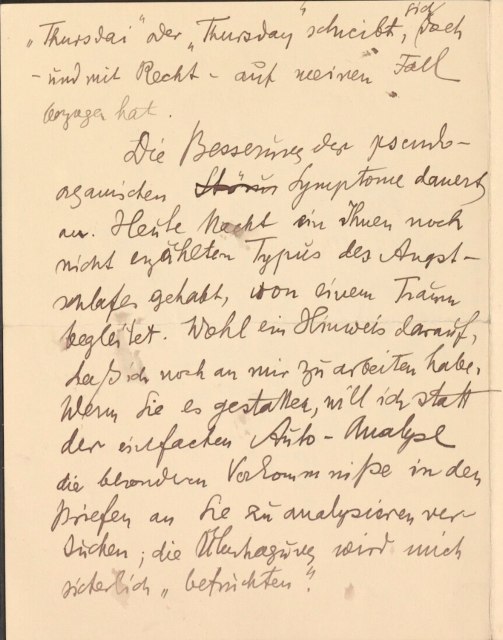 „Thursdai“ oder „Thursday“ schreibt, sich doch
– und mit Recht – auf meinen Fall
bezogen hat.
Die Besserung der pseudo-
organischen Symptome dauert
an. Heute Nacht ein Ihnen noch
nicht erzählten Typus des Angst-
schlafes gehabt, von einem Traum
begleitet. Wohl ein Hinweis darauf,
daß ich noch an mir zu arbeiten habe.
Wenn Sie es gestatten, will ich statt
der einfachen Auto-Analyse
die besonderen Vorkommniße in den
Briefen an Sie zu analysieren ver-
suchen; die Übertragung wird mich
sicherlich „befruchten“.